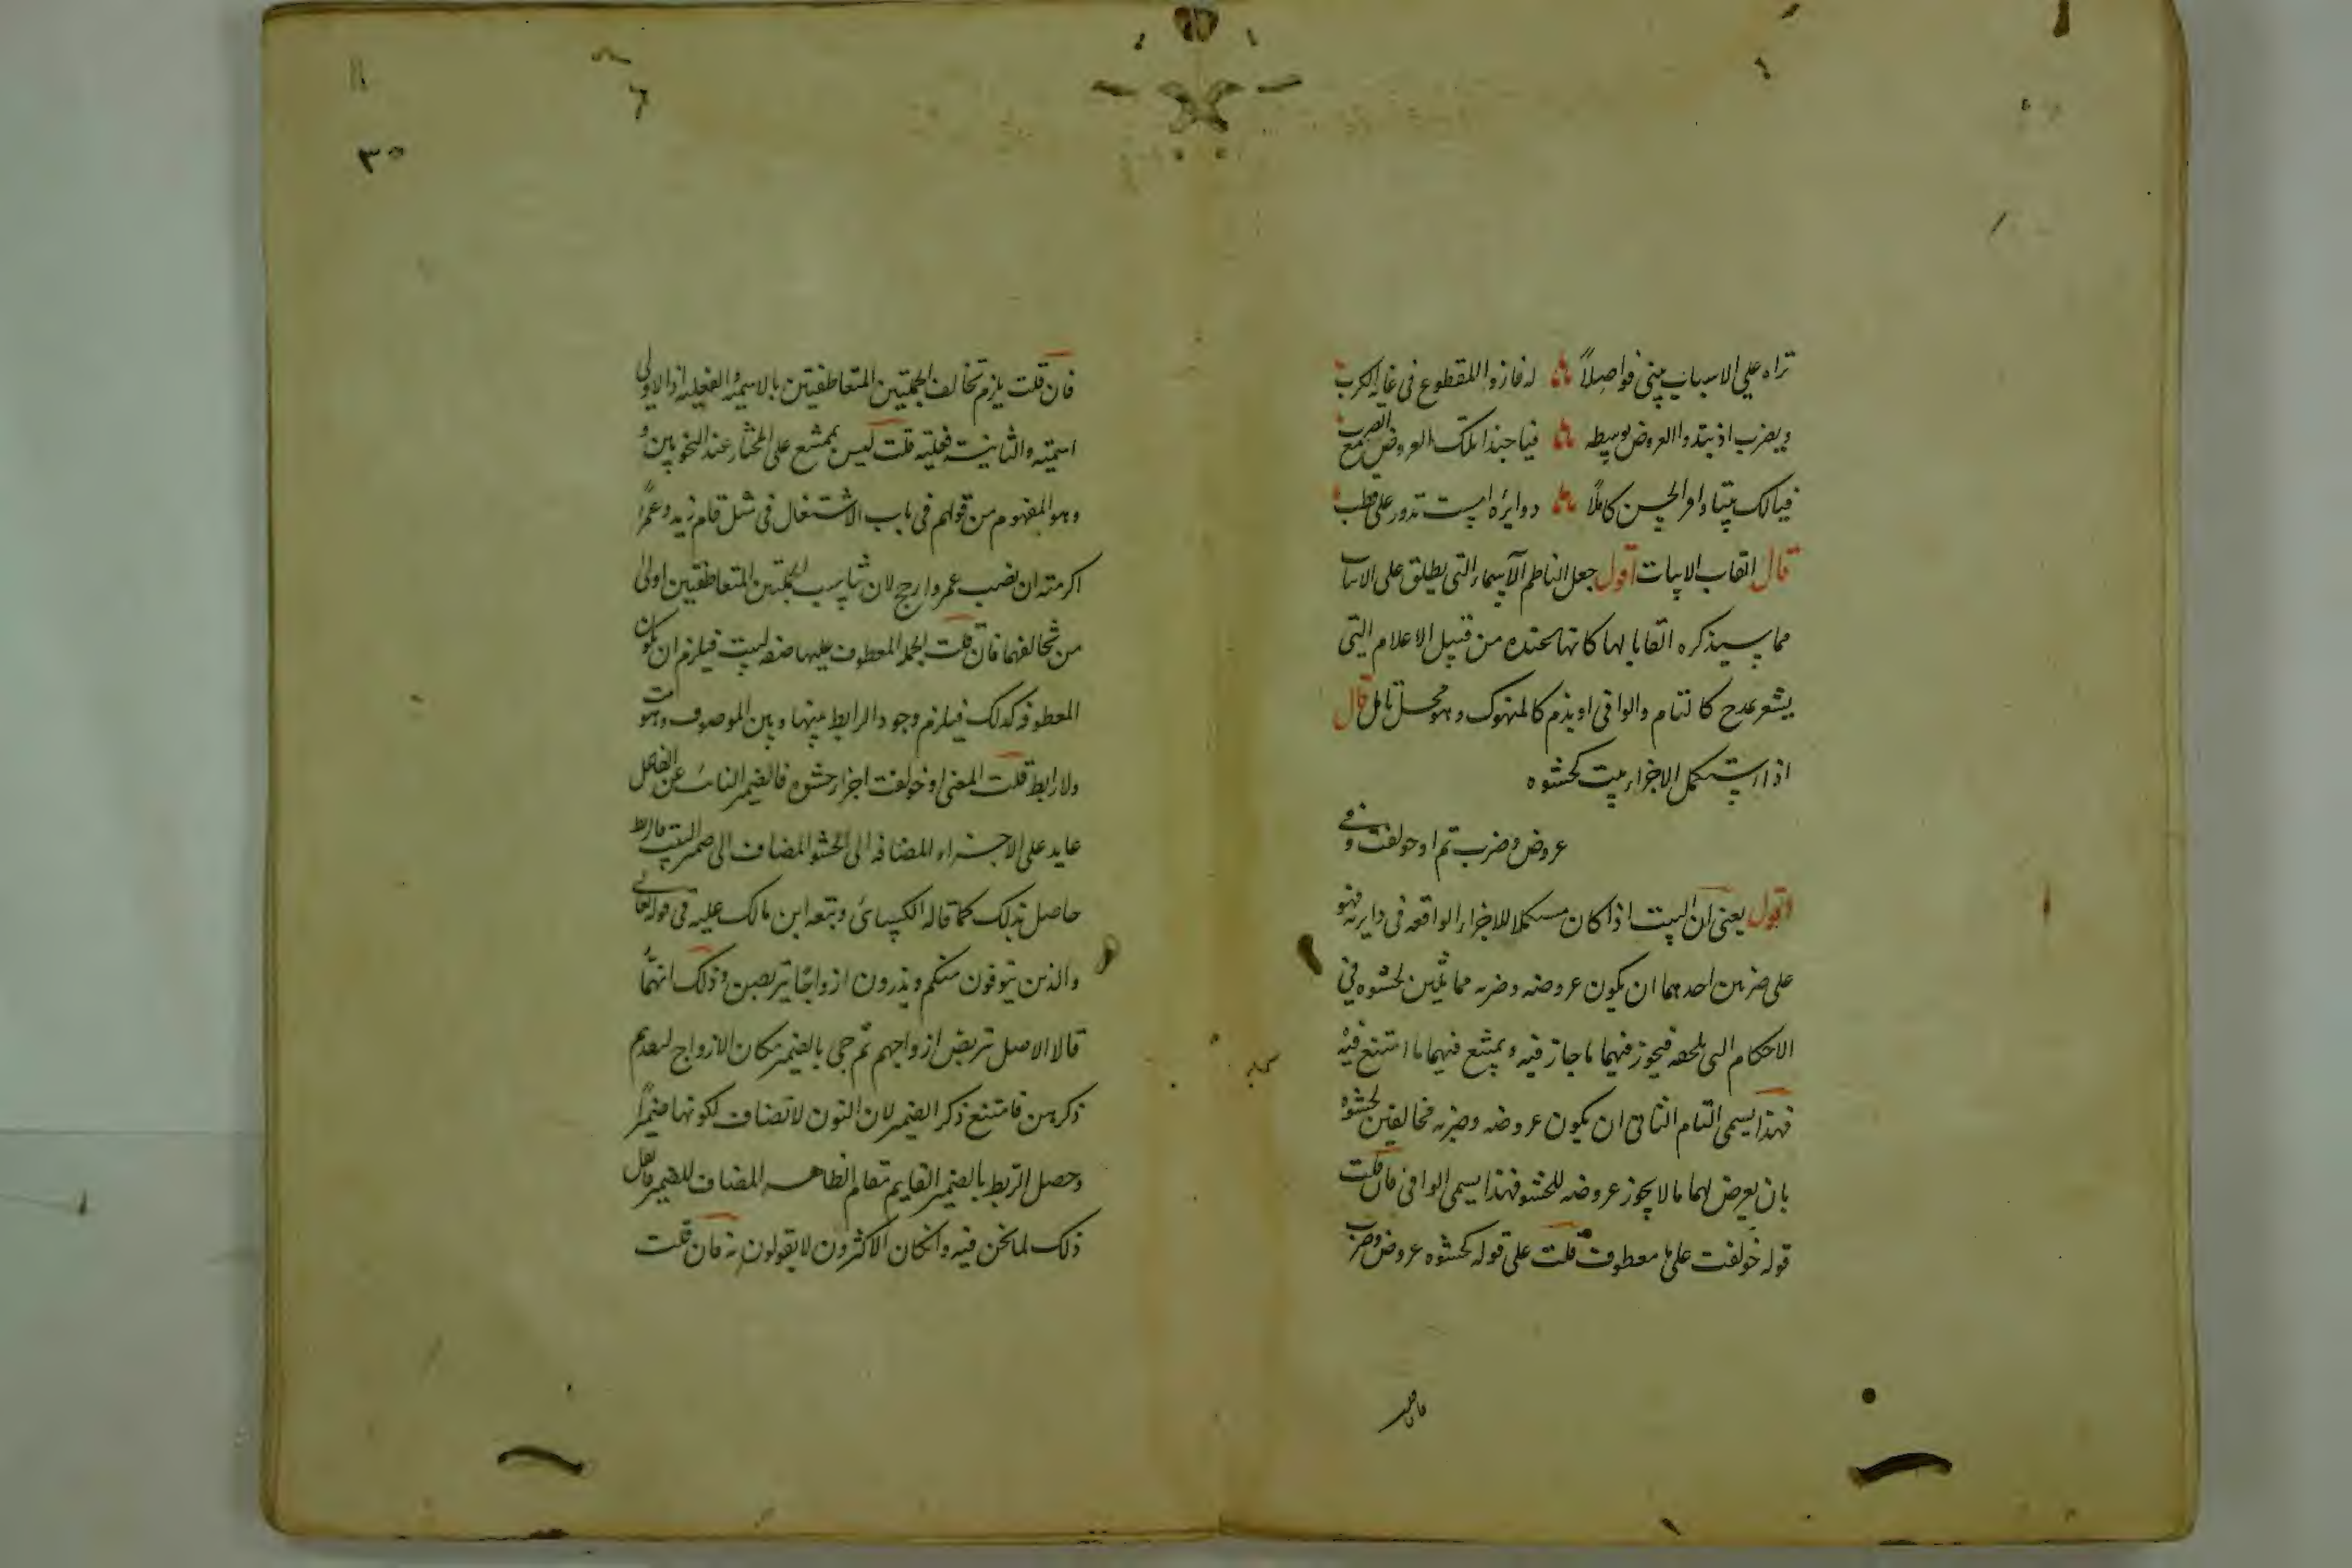 تراه على الاسباب يبنى فواصلاً له فاز والمقطوع فى غاية الكرب
ويضرب اذ يبدو العروض بوسطه فيا حبذا تلك العروض مع الضرب
فيا لك بيتا وافر الحسن كاملاً دوائره امست تدور على قطب
قال القاب الابيات اقول جعل الناظم الاسماء التى يطلق على الابيات
مما سيذكره القابا لها كانها عنده من قبيل الاعلام التى
يشعر بمدح كالتام والوافى او بذم كالمنهوك وهو محل تامل قال
اذا استكمل الاجزاء بيت كحشوه
عروض وضرب تم او خولفت وفى
اقول يعنى ان البيت اذا كان مستكملا للاجزاء الواقعه فى دايرته فهو
على ضربين احدهما ان يكون عروضه وضربه مماثلين لحشوه فى
الاحكام التى تلحقه فيجوز فيهما ما جاز فيه ويمتنع فيهما ما امتنع فيه
فهذا يسمى التام الثانى ان يكون عروضه وضربه مخالفين لحشوه
بان يعرض لهما ما لا يجوز عروضه للحشو فهذا يسمى الوافى فان قلت
قوله خولفت على معطوف قلت على قوله كحشوه عروض وضرب
فان قلت
٣٥
فان قلت يلزم تخالف الجملتين المتعاطفتين بالاسميه والفعليه اذ الاولى
اسميه والثانيه فعليه قلت ليس بممتنع على المختار عند النحويين و
وهو المفهوم من قولهم فى باب الاشتغال فى مثل قام زيد وعمرًا
اكرمته ان نصب عمرو ارجح لان تناسب الجملتين المتعاطفتين اولى
من تخالفهما فان قلت الجملة المعطوف عليها صفه لبيت فيلزم ان يكون
المعطوفه كذلك فيلزم وجود الرابط بينها وبين الموصوف وهو بيت
ولا رابط قلت المعنى او خولفت اجزاء حشوه فالضمير النائب عن الفاعل
عايد على الاجزاء المضافه الى الحشو المضاف الى ضمير البيت فالربط
حاصل بذلك كما قاله الكسائى وتبعه ابن مالك عليه فى قوله تعالى
والذين يتوفون منكم ويذرون ازواجًا يتربصن وذلك انهما
قالا الاصل تربص ازواجهم ثم جى بالضمير مكان الازواج لتقدم
ذكرهن فامتنع ذكر الضمير لان النون لا تضاف لكونها ضميرًا
وحصل الربط بالضمير القايم مقام الظاهر المضاف للضمير
ذلك لما نحن فيه وان كان الاكثرون لا يقولون به فان قلت